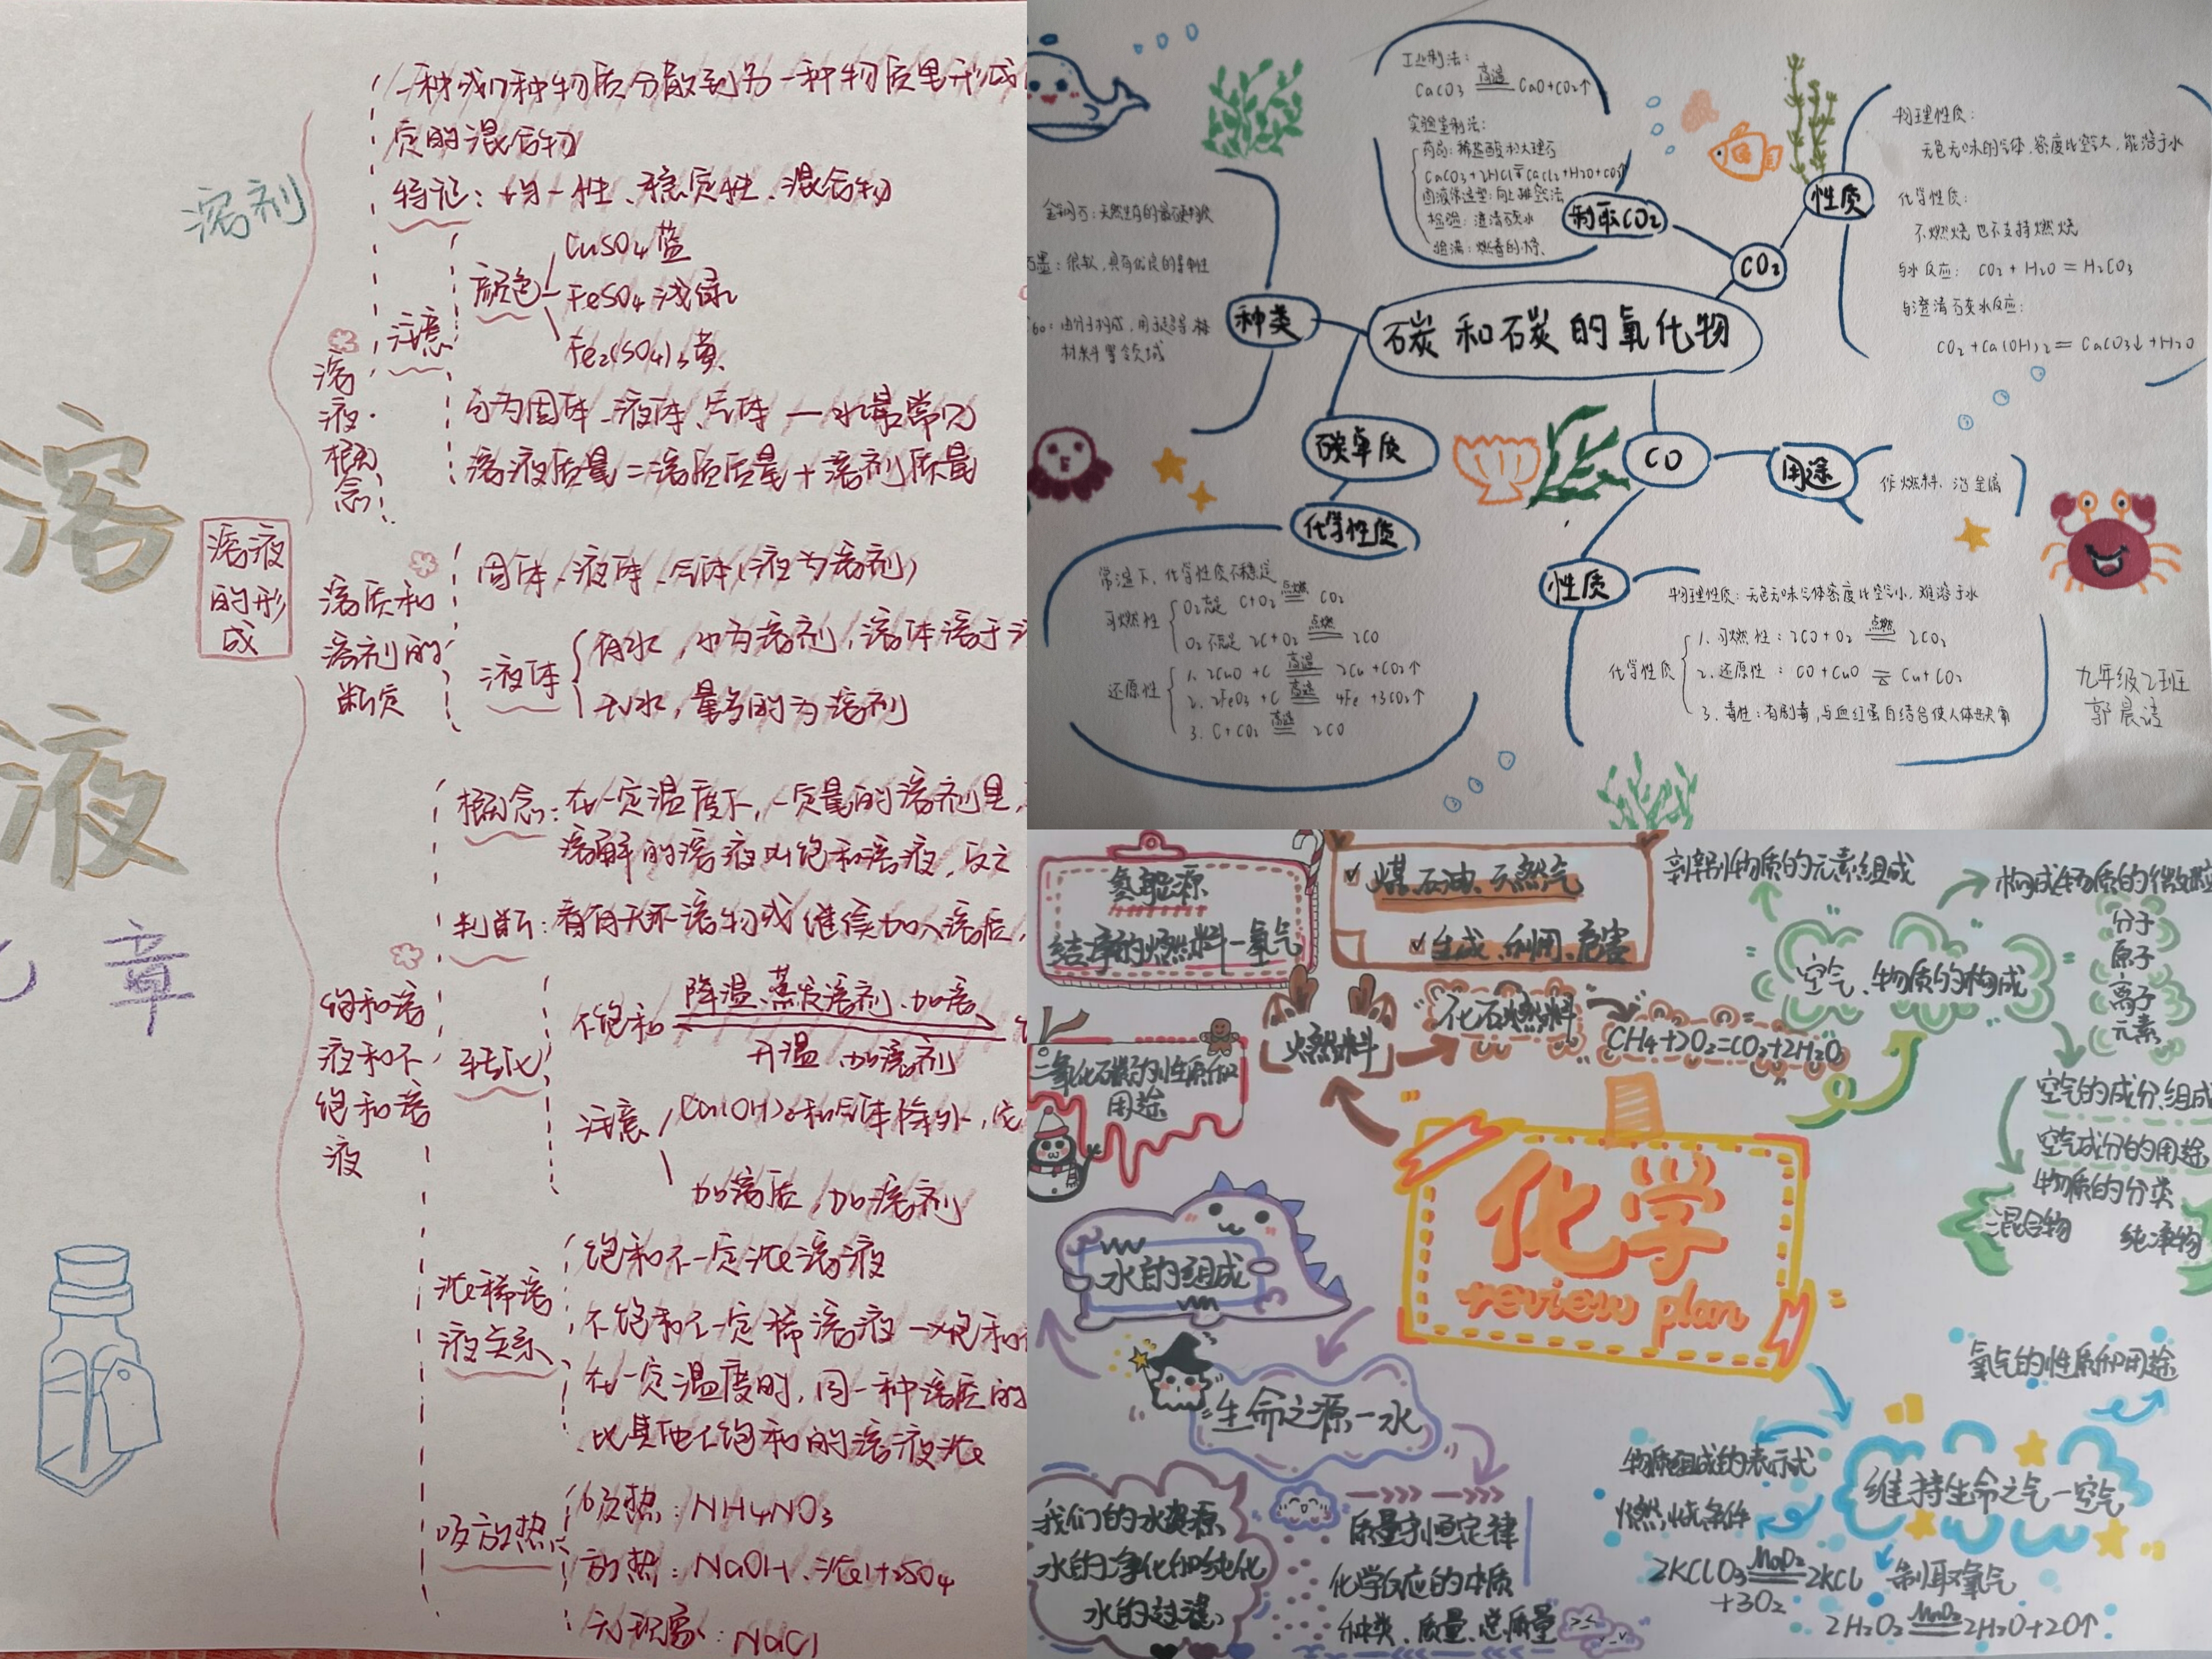 溶剂
溶
液
章
溶液
的形
成
溶
液
概
念
一种或几种物质分散到另一种物质里形成
定的混合物
特记:均一性、稳定性、混合物
注意
颜色
CuSO4 蓝
FeSO4 浅绿
Fe2(SO4)3 黄
分为固体、液体、气体 — 水最常见
溶液质量=溶质质量+溶剂质量
溶质和
溶剂的
断定
固体、液体、气体(液为溶剂)
液体
有水,水为溶剂,液体溶于
无水,量多的为溶剂
饱和溶
液和不
饱和溶
液
概念:在一定温度下,一定量的溶剂里,
溶解的溶液叫饱和溶液,反之
判断:看有无不溶物或继续加入溶质,
转化
不饱和
降温、蒸发溶剂、加溶
升温 加溶剂
注意
Ca(OH)2和气体除外,
加溶质,加溶剂
浓稀溶
液关系
饱和不一定浓溶液
不饱和不一定稀溶液
在一定温度时,同一种溶质的
比其他不饱和的溶液浓
吸放热
吸热:NH4NO3
放热:NaOH、浓H2SO4
无现象:NaCl
工业制法:
CaCO3 高温 CaO+CO2↑
实验室制法:
药品:稀盐酸和大理石
CaCO3+2HCl=CaCl2+H2O+CO2↑
固液常温型:向上排空法
检验:澄清石灰水
验满:燃着的木条
制取CO2
CO2
性质
物理性质:
无色无味的气体,密度比空气大,能溶于水
化学性质:
不燃烧也不支持燃烧
与水反应: CO2+H2O=H2CO3
与澄清石灰水反应:
CO2+Ca(OH)2=CaCO3↓+H2O
碳和石炭的氧化物
种类
金刚石:天然生存的最硬物质
石墨:很软,具有优良的导电性
C60:由分子构成,用于超导材
材料等领域
碳单质
化学性质
常温下,化学性质不稳定
可燃性
O2充足 C+O2 点燃 CO2
O2不充足 2C+O2 点燃 2CO
还原性
1. 2CuO+C 高温 2Cu+CO2↑
2. 2FeO3+C 高温 4Fe+3CO2↑
3. C+CO2 高温 2CO
CO
用途
作燃料、冶金属
性质
物理性质:无色无味气体密度比空气小,难溶于水
化学性质
1. 可燃性:2CO+O2 点燃 2CO2
2. 还原性:CO+CuO △ Cu+CO2
3. 毒性:有剧毒,与血红蛋白结合使人体缺氧
九年级2班
氢能源
洁净的燃料—氢气
✓煤、石油、天然气
✓生成、利用、危害
燃料
化石燃料
CH4+2O2=CO2+2H2O
二氧化碳的性质和
用途
辨别物质的元素组成
构成物质的微粒
空气、物质的构成
分子
原子
离子
元素
空气的成分、组成
空气成分的用途
物质的分类
混合物 纯净物
化学
review plan
水的组成
生命之源—水
我们的水资源
水的净化和纯化
水的过滤
质量守恒定律
化学反应的本质
种类、质量、总质量
氧气的性质和用途
维持生命之气—空气
物质组成的表示式
燃烧条件
2KClO3 MnO2 2KCl
+3O2
制取氧气
2H2O2 MnO2 2H2O+2O↑